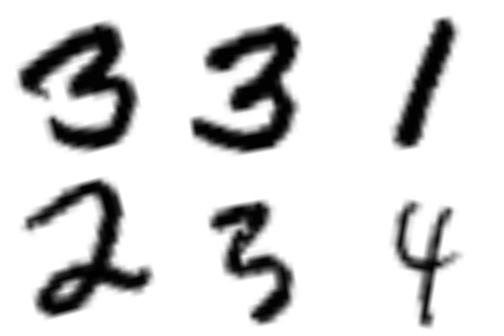 3 3 1
2 3 4